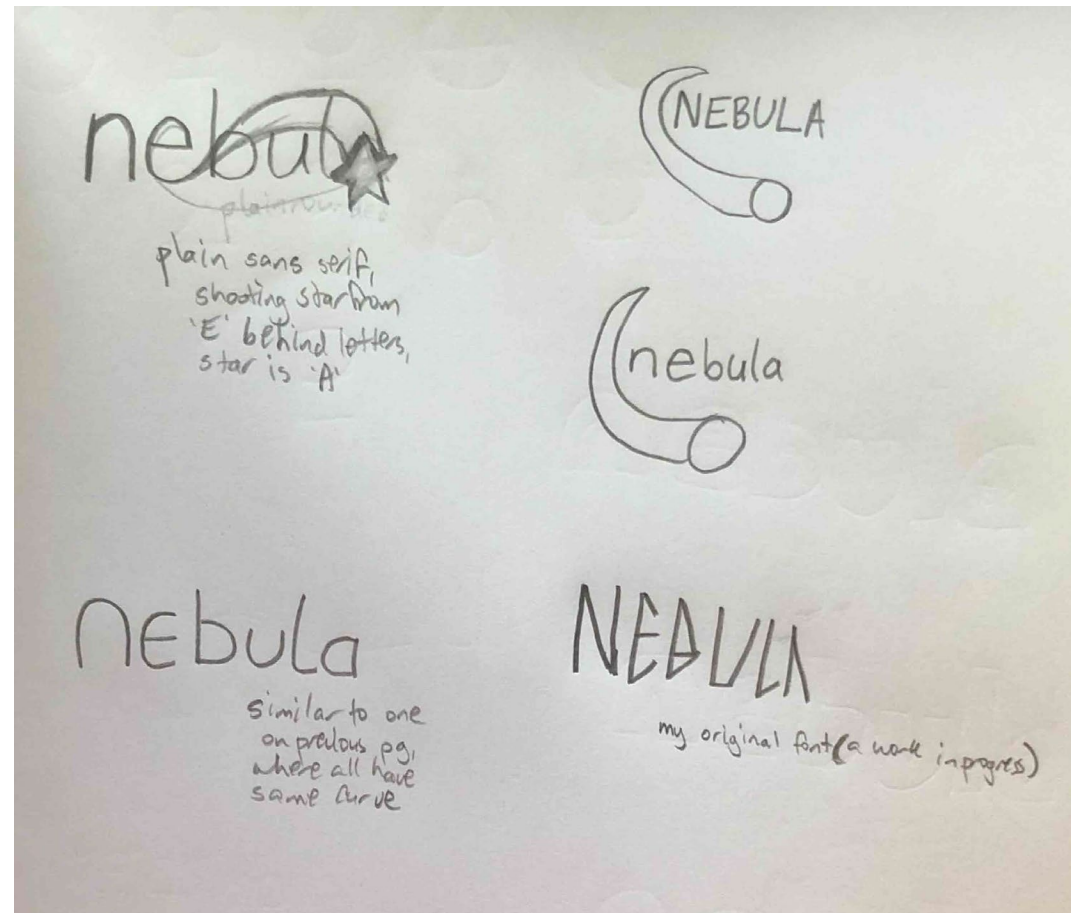 nebul
plain rounded
plain sans serif,
shooting star from
'E' behind letters,
star is 'A'
NEBULA
nebula
nEbula
similar to one
on previous pg,
where all have
same curve
NEBULA
my original font (a work in progress)